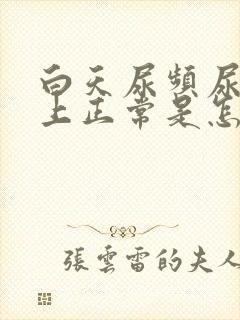 白天尿頻尿
上正常是怎
張雲雷的夫人